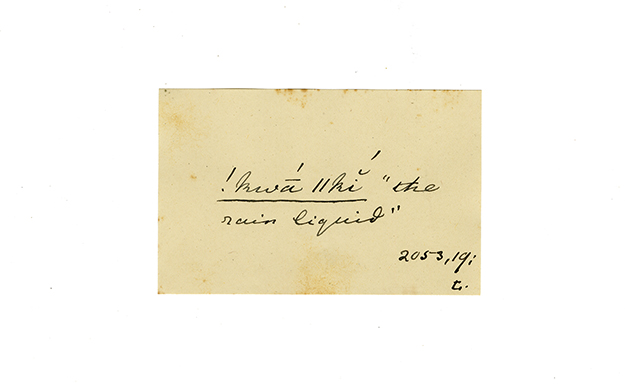 !kwā́ ǁkĭ́ "the
rain liquid"
2053,19;
L.